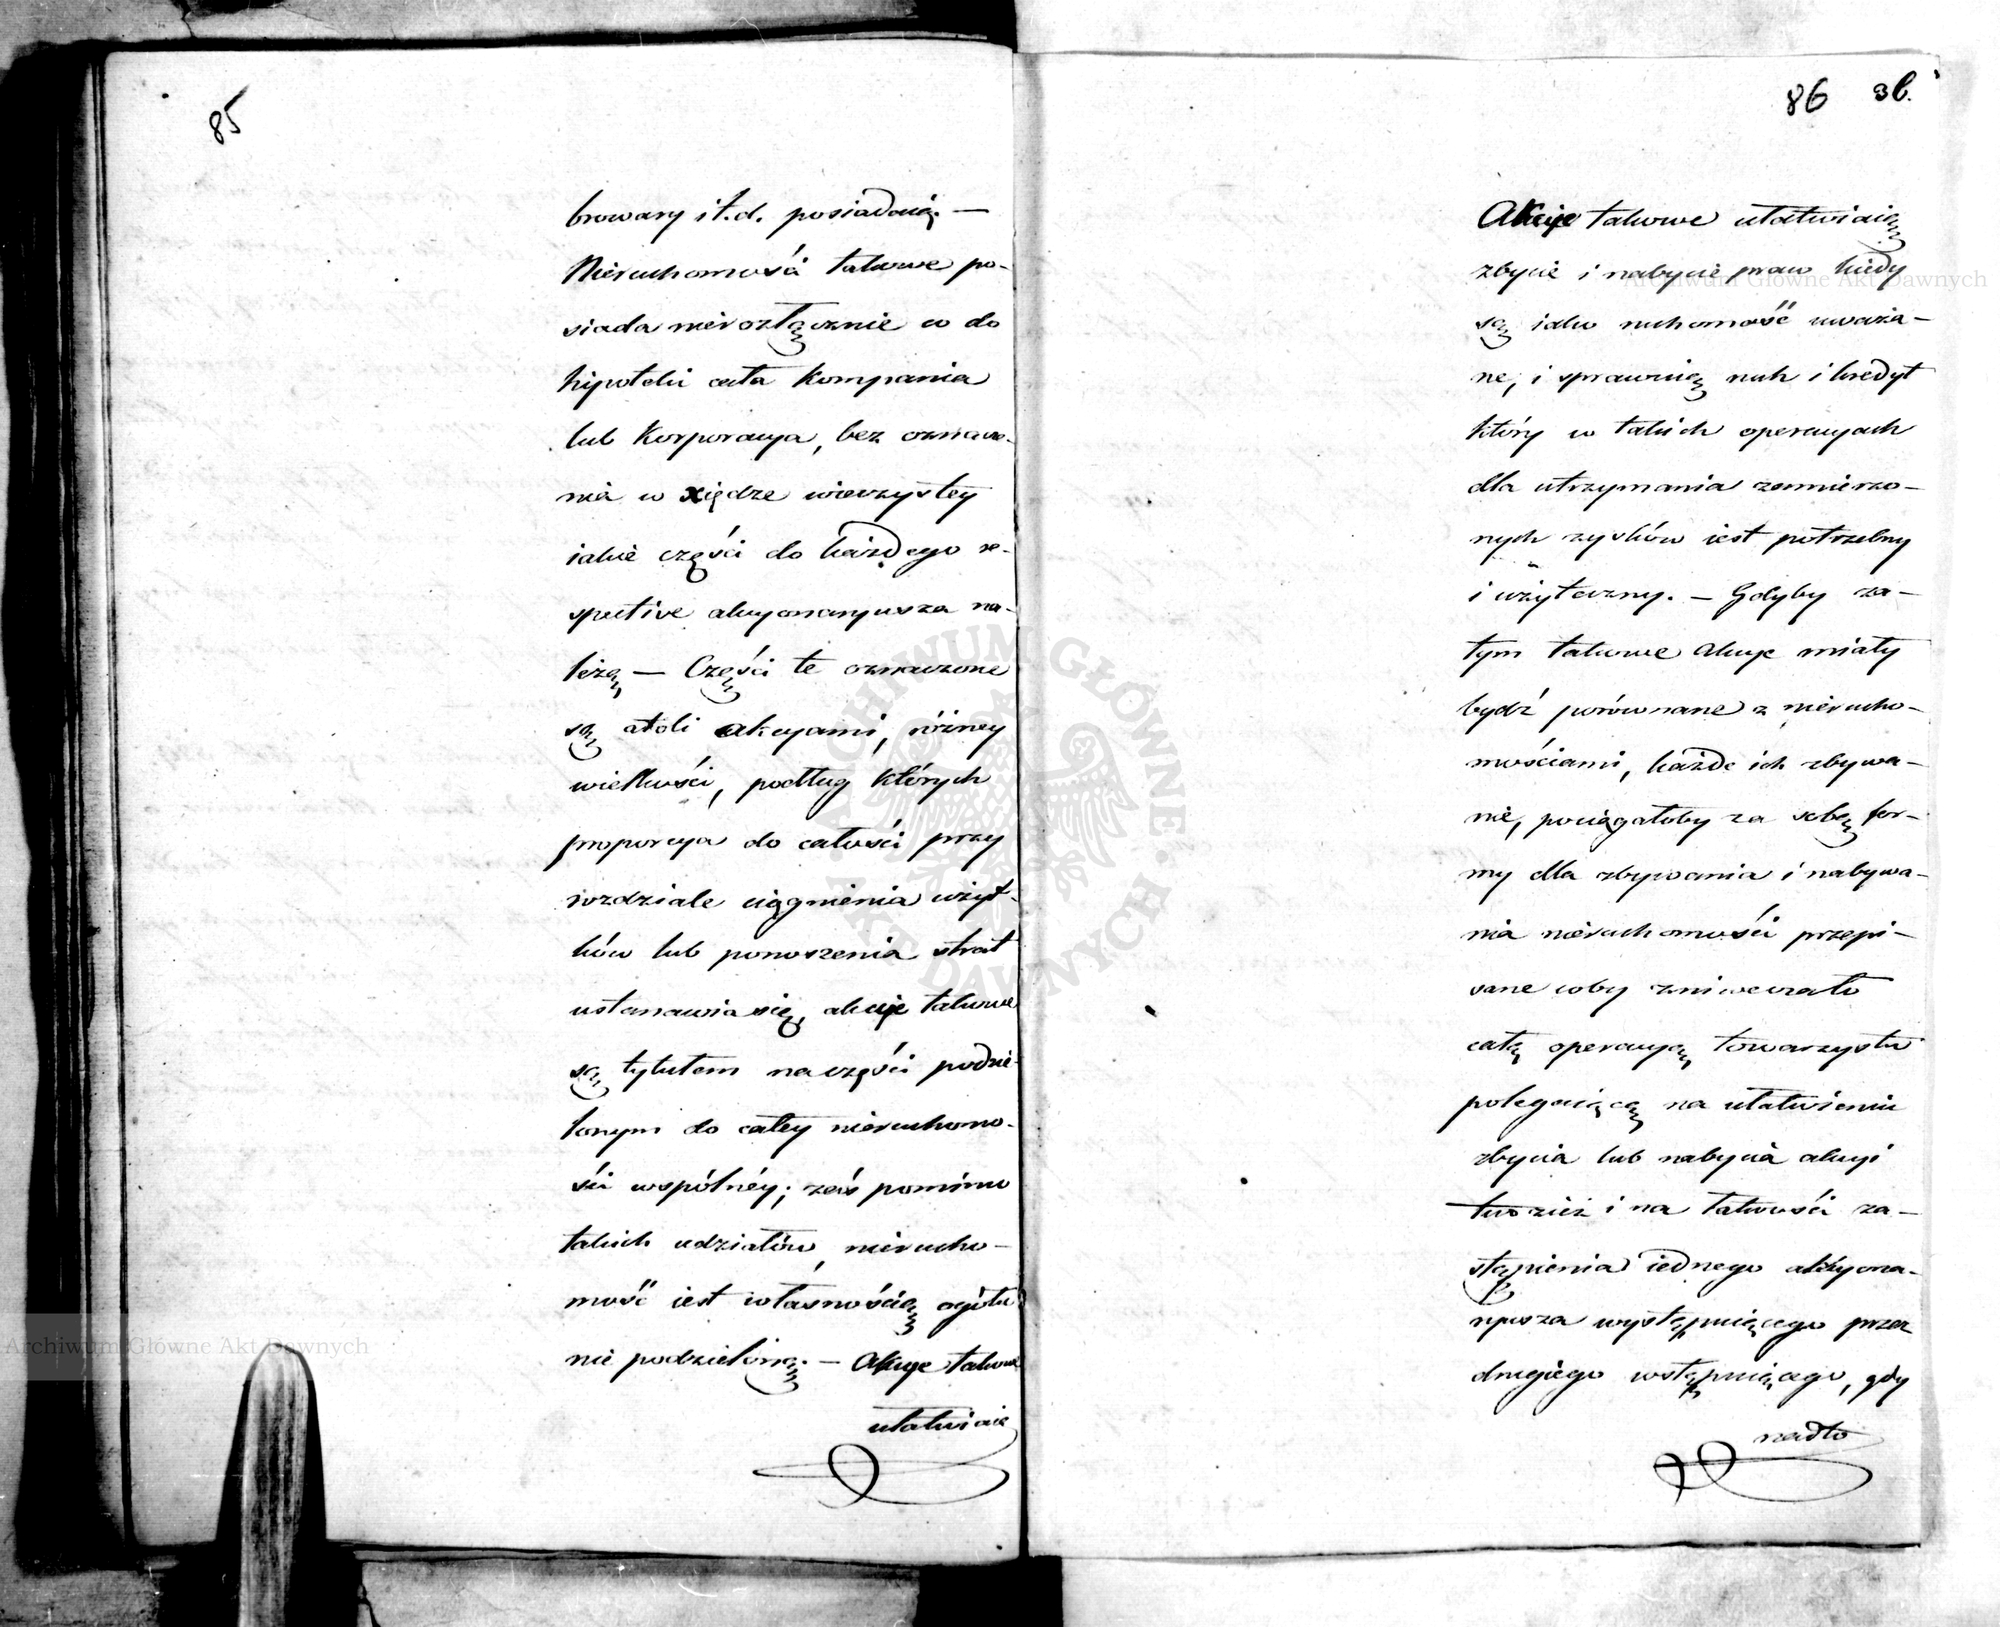 85
browary i t.d. posiadaią. —
Nieruchomości takowe po-
siada nierozłącznie co do
hipoteki cała Kompania
lub Korporacya, bez oznacze-
nia w xiędze wieczystey
iakie części do każdego re-
spective akcyonaryusza na-
leżą, — Części te oznaczone
są atoli akcyami, różney
wielkości, podług których
proporcya do całości przy
rozdziale ciągnienia użyt-
ków lub ponoszenia strat
ustanawia się, akcye takowe
są tytułem na części podzie-
lonym do całey nieruchomo-
ści wspólnéy; zaś pomimo
takich udziałów, nierucho-
mość iest własnością ogółu
nie podzieloną. — Akcye takowe
ułatwiaią
86 36.
Akcye takowe ułatwiaią
zbycie i nabycie praw kiedy
są iako ruchomość uważa-
ne, i sprawuią ruch i kredyt
który w takich operacyach
dla utrzymania zamierzo-
nych zysków iest potrzebny
i użyteczny. — Gdyby za-
tym takowe akcye miały
bydź porównane z nierucho-
mościami, każde ich zbywa-
nie, pociągałoby za sobą for-
my dla zbywania i nabywa-
nia nieruchomości przepi-
sane coby zniweczało
całą operacyą towarzystw
polegaiącą na ułatwieniu
zbycia lub nabycia akcyi
tudzież i na łatwości za-
stąpienia iednego akcyona-
ryusza występuiącego przez
drugiego wstępuiącego, gdy
nadto
Archiwum Główne Akt Dawnych
Archiwum Główne Akt Dawnych
ARCHIWUM GŁÓWNE AKT DAWNYCH